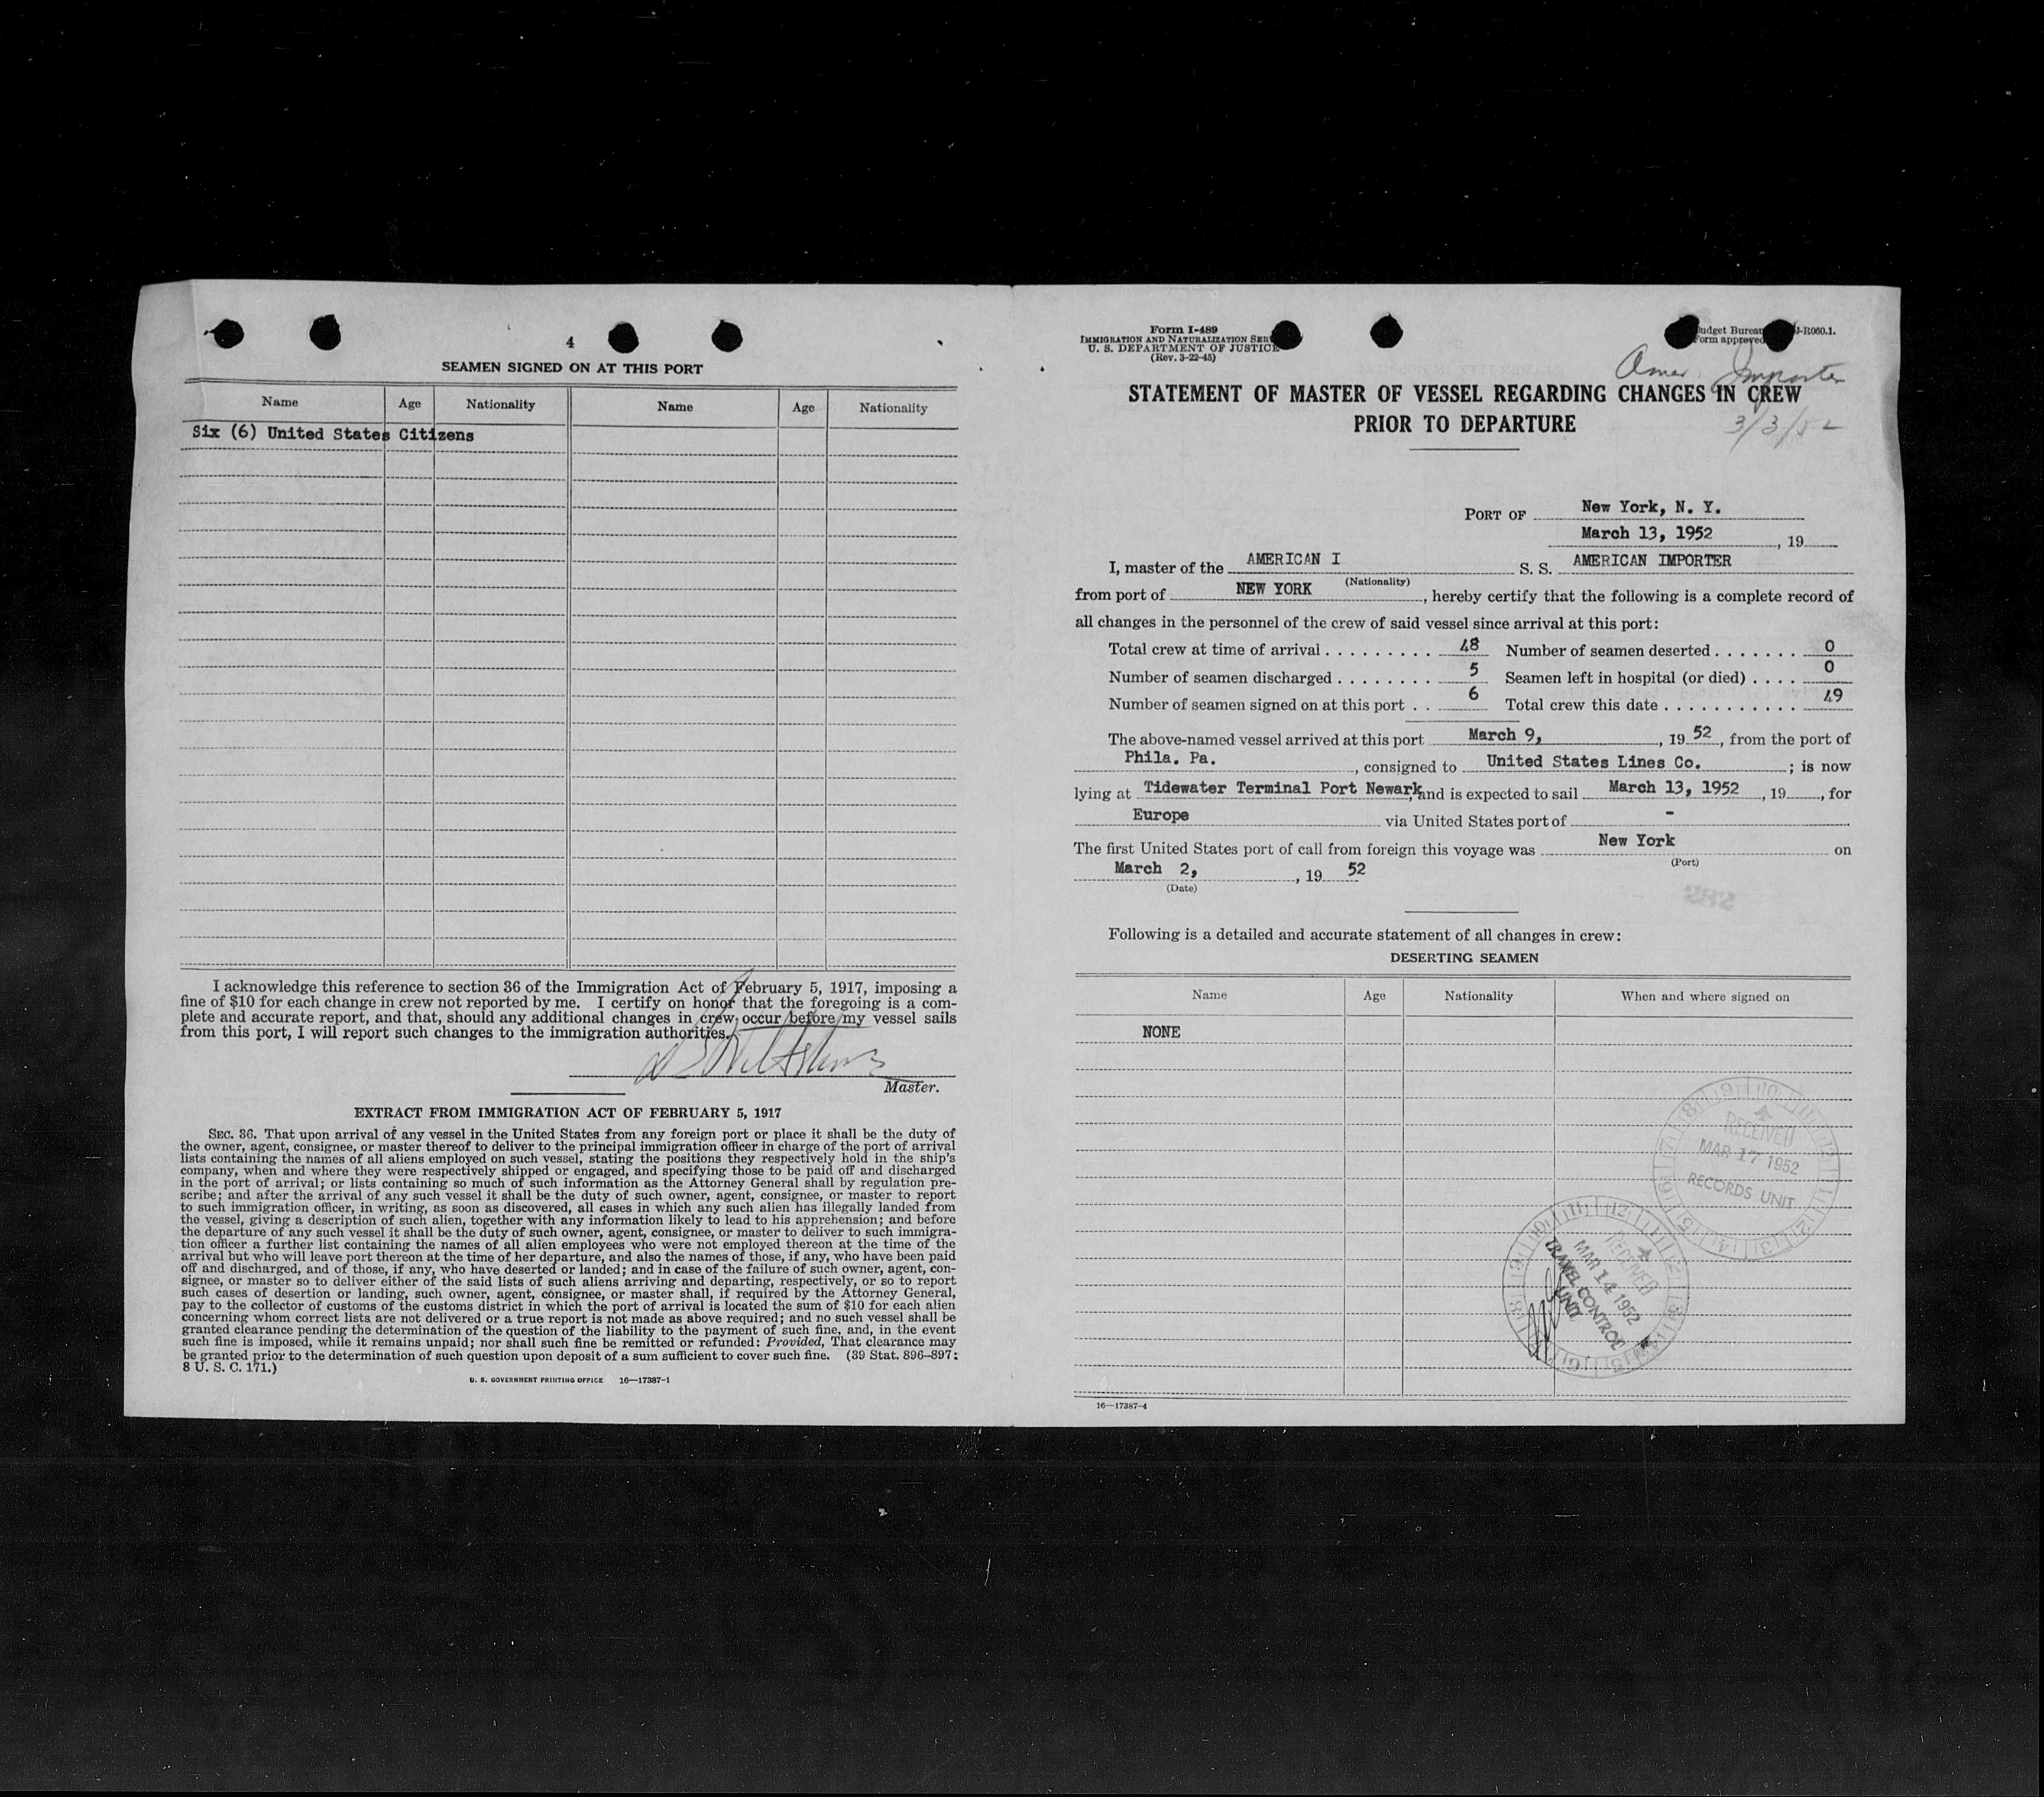 4
SEAMEN SIGNED ON AT THIS PORT
Name Age Nationality Name Age Nationality
Six (6) United States Citizens
I acknowledge this reference to section 36 of the Immigration Act of February 5, 1917, imposing a
fine of $10 for each change in crew not reported by me. I certify on honor that the foregoing is a com-
plete and accurate report, and that, should any additional changes in crew occur before my vessel sails
from this port, I will report such changes to the immigration authorities.
Master.
EXTRACT FROM IMMIGRATION ACT OF FEBRUARY 5, 1917
SEC. 36. That upon arrival of any vessel in the United States from any foreign port or place it shall be the duty of
the owner, agent, consignee, or master thereof to deliver to the principal immigration officer in charge of the port of arrival
lists containing the names of all aliens employed on such vessel, stating the positions they respectively hold in the ship's
company, when and where they were respectively shipped or engaged, and specifying those to be paid off and discharged
in the port of arrival; or lists containing so much of such information as the Attorney General shall by regulation pre-
scribe; and after the arrival of any such vessel it shall be the duty of such owner, agent, consignee, or master to report
to such immigration officer, in writing, as soon as discovered, all cases in which any such alien has illegally landed from
the vessel, giving a description of such alien, together with any information likely to lead to his apprehension; and before
the departure of any such vessel it shall be the duty of such owner, agent, consignee, or master to deliver to such immigra-
tion officer a further list containing the names of all alien employees who were not employed thereon at the time of the
arrival but who will leave port thereon at the time of her departure, and also the names of those, if any, who have been paid
off and discharged, and of those, if any, who have deserted or landed; and in case of the failure of such owner, agent, con-
signee, or master so to deliver either of the said lists of such aliens arriving and departing, respectively, or so to report
such cases of desertion or landing, such owner, agent, consignee, or master shall, if required by the Attorney General,
pay to the collector of customs of the customs district in which the port of arrival is located the sum of $10 for each alien
concerning whom correct lists are not delivered or a true report is not made as above required; and no such vessel shall be
granted clearance pending the determination of the question of the liability to the payment of such fine, and, in the event
such fine is imposed, while it remains unpaid; nor shall such fine be remitted or refunded: Provided, That clearance may
be granted prior to the determination of such question upon deposit of a sum sufficient to cover such fine. (39 Stat. 896–897;
8 U. S. C. 171.)
U. S. GOVERNMENT PRINTING OFFICE 16—17387-1
Form I-489
IMMIGRATION AND NATURALIZATION SER
U. S. DEPARTMENT OF JUSTICE
(Rev. 3-22-45)
udget Bureau J-R060.1.
Form approved
Amer. Importer
3/3/52
STATEMENT OF MASTER OF VESSEL REGARDING CHANGES IN CREW
PRIOR TO DEPARTURE
PORT OF New York, N. Y.
March 13, 1952 , 19
I, master of the AMERICAN I S. S. AMERICAN IMPORTER
(Nationality)
from port of NEW YORK , hereby certify that the following is a complete record of
all changes in the personnel of the crew of said vessel since arrival at this port:
Total crew at time of arrival . . . . . . . . . 48 Number of seamen deserted . . . . . . . 0
Number of seamen discharged . . . . . . . . 5 Seamen left in hospital (or died) . . . . 0
Number of seamen signed on at this port . . 6 Total crew this date . . . . . . . . . . . 49
The above-named vessel arrived at this port March 9, , 19 52 , from the port of
Phila. Pa. , consigned to United States Lines Co. ; is now
lying at Tidewater Terminal Port Newark, and is expected to sail March 13, 1952 , 19 , for
Europe via United States port of -
The first United States port of call from foreign this voyage was New York on
(Port)
March 2, , 19 52
(Date)
Following is a detailed and accurate statement of all changes in crew:
DESERTING SEAMEN
Name Age Nationality When and where signed on
NONE
RECEIVED
MAR 17 1952
RECORDS UNIT
RECEIVED
MAR 14 1952
TRAVEL CONTROL
UNIT
16—17387-4